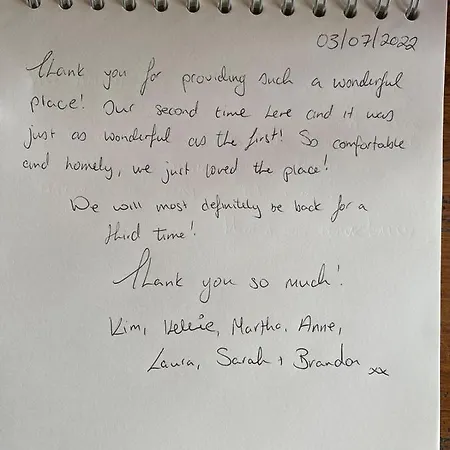 03/07/2022
Thank you for providing such a wonderful
place! Our second time here and it was
just as wonderful as the first! So comfortable
and homely, we just loved the place!
We will most definitely be back for a
third time!
Thank you so much!
Kim, Martha, Anne,
Laura, Sarah + Brandon xx